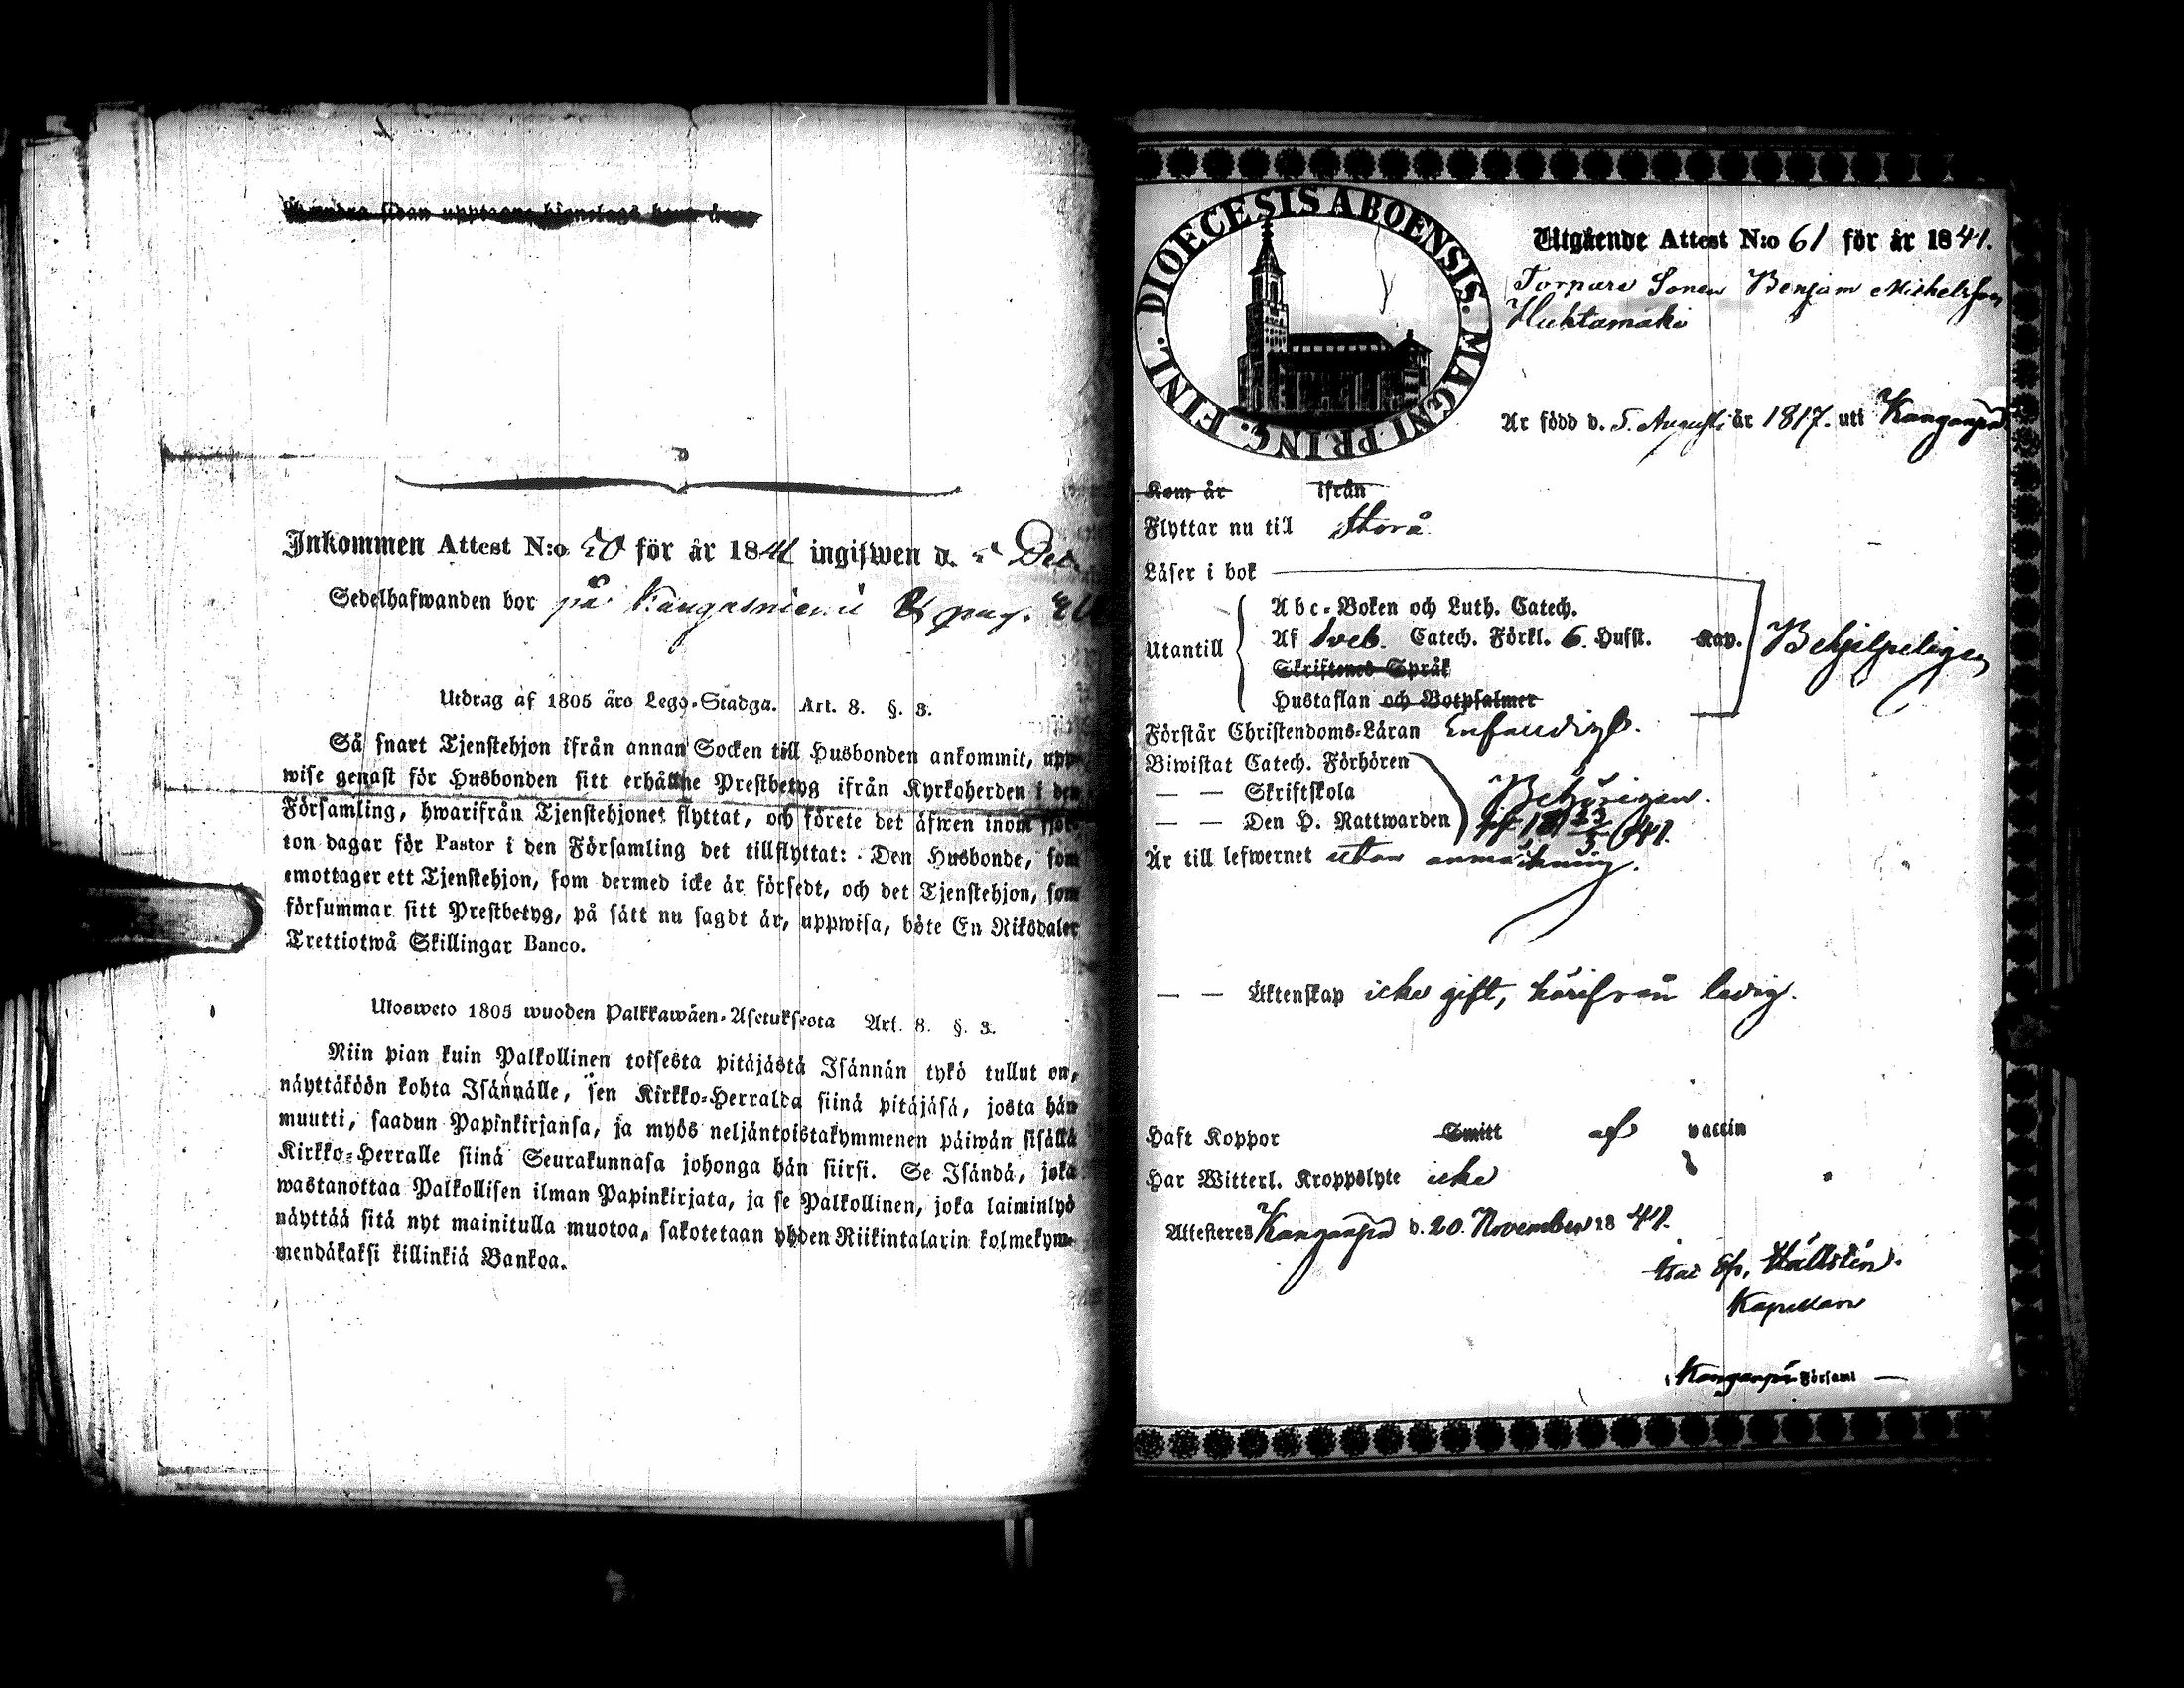 Å andra sidan upptagne hjonelags
Inkommen Attest N:o 50 för år 1841 ingifwen d. 5 Dec.
Sedelhafwanden bor på Kangasniemi pag.
Utdrag af 1805 års Lego-Stadga. Art. 8. §. 3.
Så snart Tjenstehjon ifrån annan Socken till Husbonden ankommit, upp-
wise genast för Husbonden sitt erhållne Prestbetyg ifrån Kyrkoherden i den
Församling, hwarifrån Tjenstehjonet flyttat, och förete det äfwen inom fjor-
ton dagar för Pastor i den Församling det tillflyttat: Den Husbonde, som
emottager ett Tjenstehjon, som dermed icke är försedt, och det Tjenstehjon, som
försummar sitt Prestbetyg, på sätt nu sagdt är, uppwisa, böte En Riksdaler
Trettiotwå Skillingar Banco.
Ulosweto 1805 wuoden Palkkawäen-Asetuksesta Art. 8. §. 3.
Niin pian kuin Palkollinen toisesta pitäjästä Isännän tykö tullut on,
näyttäköön kohta Isännälle, sen Kirkko-Herralda siinä pitäjäsä, josta hän
muutti, saadun Papinkirjansa, ja myös neljäntoistakymmenen päiwän sisällä
Kirkko-Herralle siinä Seurakunnasa johonga hän siirsi. Se Isändä, joka
wastanottaa Palkollisen ilman Papinkirjata, ja se Palkollinen, joka laiminlyö
näyttää sitä nyt mainitulla muotoa, sakotetaan yhden Riikintalarin kolmekym-
mendäkaksi killinkiä Bankoa.
DIOECESIS ABOENSIS. MAGNI PRINC. FINL.
Utgående Attest N:o 61 för år 1841.
Torpare Sonen Benjam Michelsson
Huhtamäki
Är född d. 5. Augusti år 1817. uti Kangaanpää
Kom år ifrån
Flyttar nu till Storå
Läser i bok
Abc-Boken och Luth. Catech.
Utantill Af Sveb. Catech. Förkl. 6. Hufst. Kap. Behjelpeligen
Skriftenes Språk
Hustaflan och Botpsalmer
Förstår Christendoms-Läran Enfaldigt.
Biwistat Catech. Förhören
— — Skriftskola Behörigen.
— — Den H. Nattwarden 23/5 41.
Är till lefwernet utan anmärkning.
— — Äktenskap icke gift, härifrån ledig.
Haft Koppor Smitt af vaccin
Har Witterl. Kroppslyte icke
Attesteras Kangaanpää d. 20. November 1841.
Isac Ep. Hällstén.
Kapellan
i Kangaanpää Församl